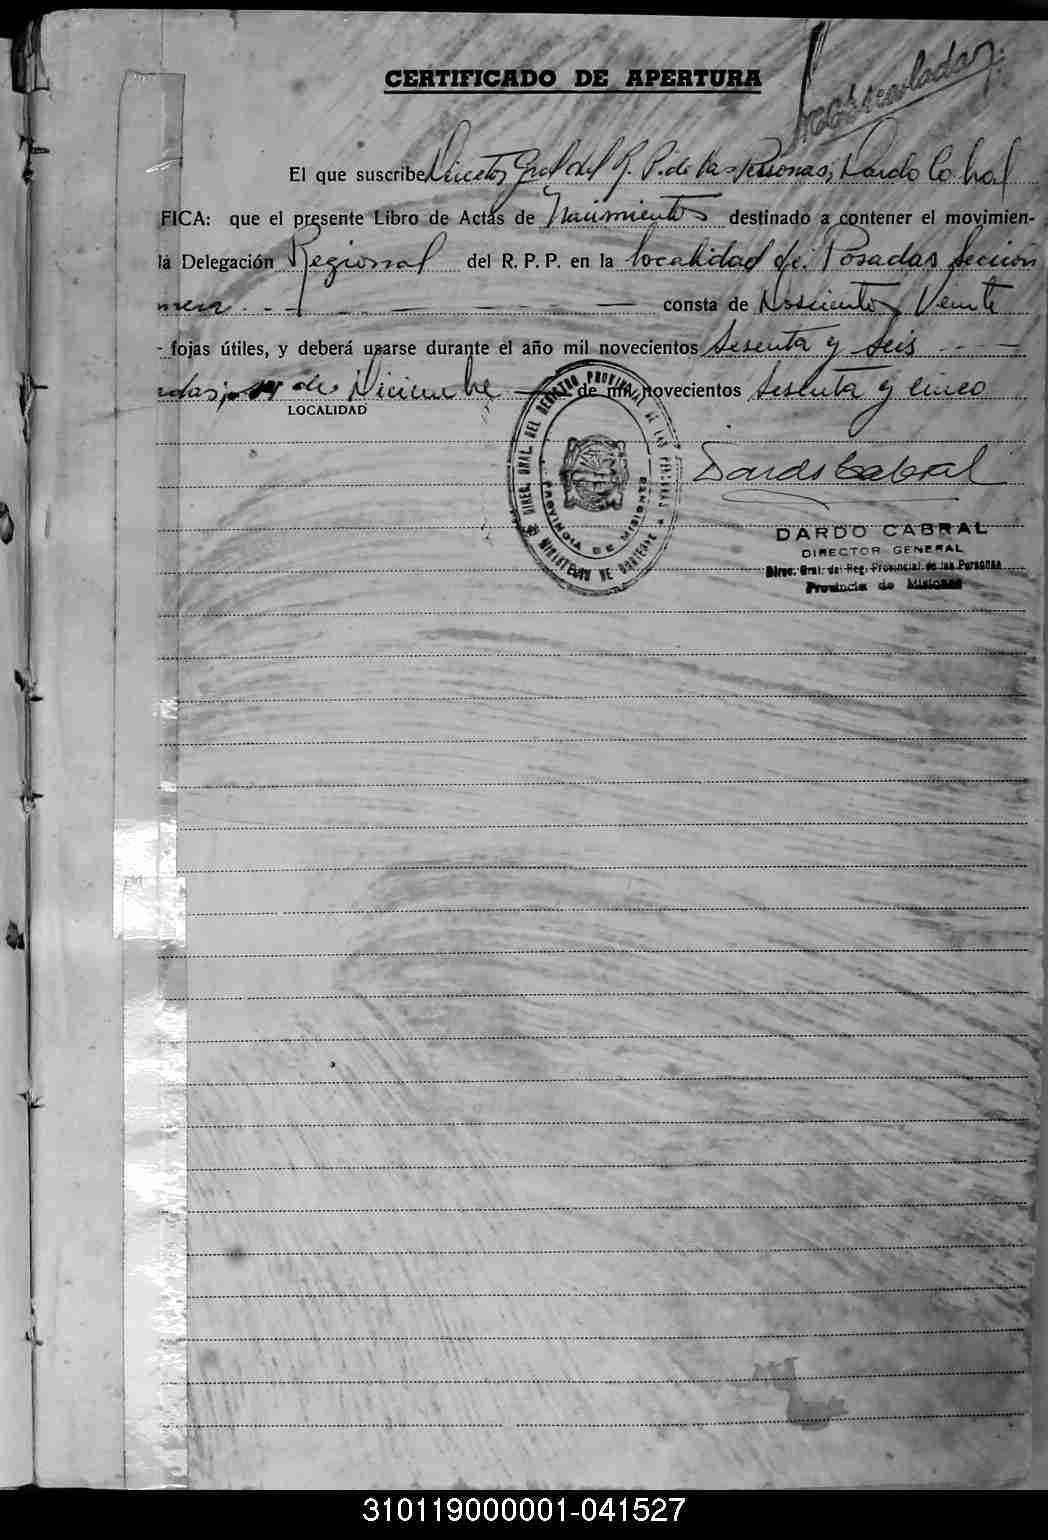 CERTIFICADO DE APERTURA
El que suscribe Director Gral del R. P. de las Personas, Dardo Cabral
FICA: que el presente Libro de Actas de Nacimientos destinado a contener el movimien-
la Delegación Regional del R. P. P. en la localidad de Posadas Sección
mera consta de Doscientos Veinte
fojas útiles, y deberá usarse durante el año mil novecientos Sesenta y Seis
adas, 14 de Diciembre de mil novecientos Sesenta y cinco
LOCALIDAD
Dardo Cabral
DIREC. GRAL. DEL REGISTRO PROVINCIAL DE LAS PERSONAS
PROVINCIA DE MISIONES
MINISTERIO DE GOBIERNO
DARDO CABRAL
DIRECTOR GENERAL
Direc. Gral. del Reg. Provincial de las Personas
Provincia de Misiones
310119000001-041527